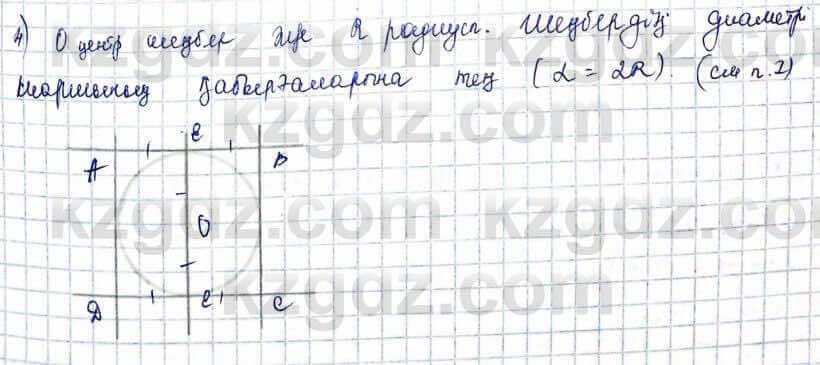 4) О центр шеңбер және R радиусы. Шеңбердің диаметрі
шаршының қабырғаларына тең (d = 2R). (см п. 2)
kzgdz.com kzgdz.com
E
A B
kzgdz.com kzgdz.com
O
kzgdz.com kzgdz.com
D E' C